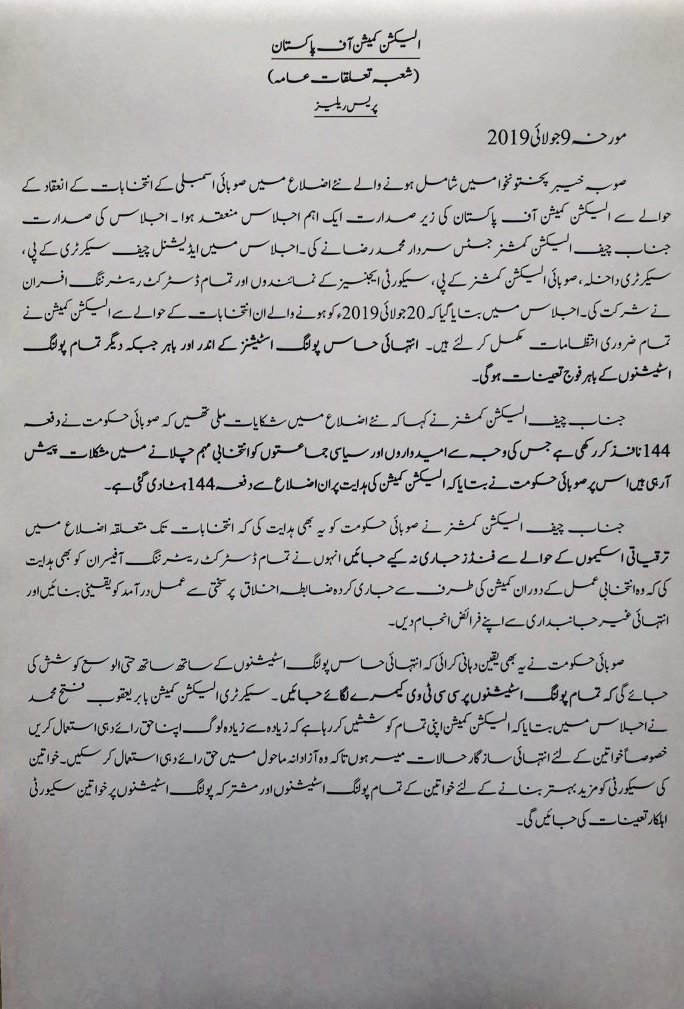 الیکشن کمیشن آف پاکستان
(شعبہ تعلقات عامہ)
پریس ریلیز
مورخہ 9 جولائی 2019
صوبہ خیبر پختونخوا میں شامل ہونے والے نئے اضلاع میں صوبائی اسمبلی کے انتخابات کے انعقاد کے
حوالے سے الیکشن کمیشن آف پاکستان کی زیر صدارت ایک اہم اجلاس منعقد ہوا ۔ اجلاس کی صدارت
جناب چیف الیکشن کمشنر جسٹس سردار محمد رضا نے کی۔ اجلاس میں ایڈیشنل چیف سیکرٹری کے پی،
سیکرٹری داخلہ، صوبائی الیکشن کمشنر کے پی، سیکورٹی ایجنسیز کے نمائندوں اور تمام ڈسٹرکٹ ریٹرننگ افسران
نے شرکت کی۔ اجلاس میں بتایا گیا کہ 20 جولائی 2019ء کو ہونے والے ان انتخابات کے حوالے سے الیکشن کمیشن نے
تمام ضروری انتظامات مکمل کر لئے ہیں۔ انتہائی حساس پولنگ اسٹیشنز کے اندر اور باہر جبکہ دیگر تمام پولنگ
اسٹیشنوں کے باہر فوج تعینات ہوگی۔
جناب چیف الیکشن کمشنر نے کہا کہ نئے اضلاع میں شکایات ملی تھیں کہ صوبائی حکومت نے دفعہ
144 نافذ کر رکھی ہے جس کی وجہ سے امیدواروں اور سیاسی جماعتوں کو انتخابی مہم چلانے میں مشکلات پیش
آرہی ہیں اس پر صوبائی حکومت نے بتایا کہ الیکشن کمیشن کی ہدایت پر ان اضلاع سے دفعہ 144 ہٹا دی گئی ہے۔
جناب چیف الیکشن کمشنر نے صوبائی حکومت کو یہ بھی ہدایت کی کہ انتخابات تک متعلقہ اضلاع میں
ترقیاتی اسکیموں کے حوالے سے فنڈز جاری نہ کیے جائیں انہوں نے تمام ڈسٹرکٹ ریٹرننگ آفیسران کو بھی ہدایت
کی کہ وہ انتخابی عمل کے دوران کمیشن کی طرف سے جاری کردہ ضابطہ اخلاق پر سختی سے عمل درآمد کو یقینی بنائیں اور
انتہائی غیر جانبداری سے اپنے فرائض انجام دیں۔
صوبائی حکومت نے یہ بھی یقین دہانی کرائی کہ انتہائی حساس پولنگ اسٹیشنوں کے ساتھ ساتھ حتی الوسع کوشش کی
جائے گی کہ تمام پولنگ اسٹیشنوں پر سی سی ٹی وی کیمرے لگائے جائیں ۔ سیکرٹری الیکشن کمیشن بابر یعقوب فتح محمد
نے اجلاس میں بتایا کہ الیکشن کمیشن اپنی تمام کوششیں کر رہا ہے کہ زیادہ سے زیادہ لوگ اپنا حق رائے دہی استعمال کریں
خصوصاً خواتین کے لئے انتہائی سازگار حالات میسر ہوں تاکہ وہ آزادانہ ماحول میں حق رائے دہی استعمال کر سکیں۔ خواتین
کی سیکورٹی کو مزید بہتر بنانے کے لئے خواتین کے تمام پولنگ اسٹیشنوں اور مشترکہ پولنگ اسٹیشنوں پر خواتین سیکورٹی
اہلکار تعینات کی جائیں گی۔